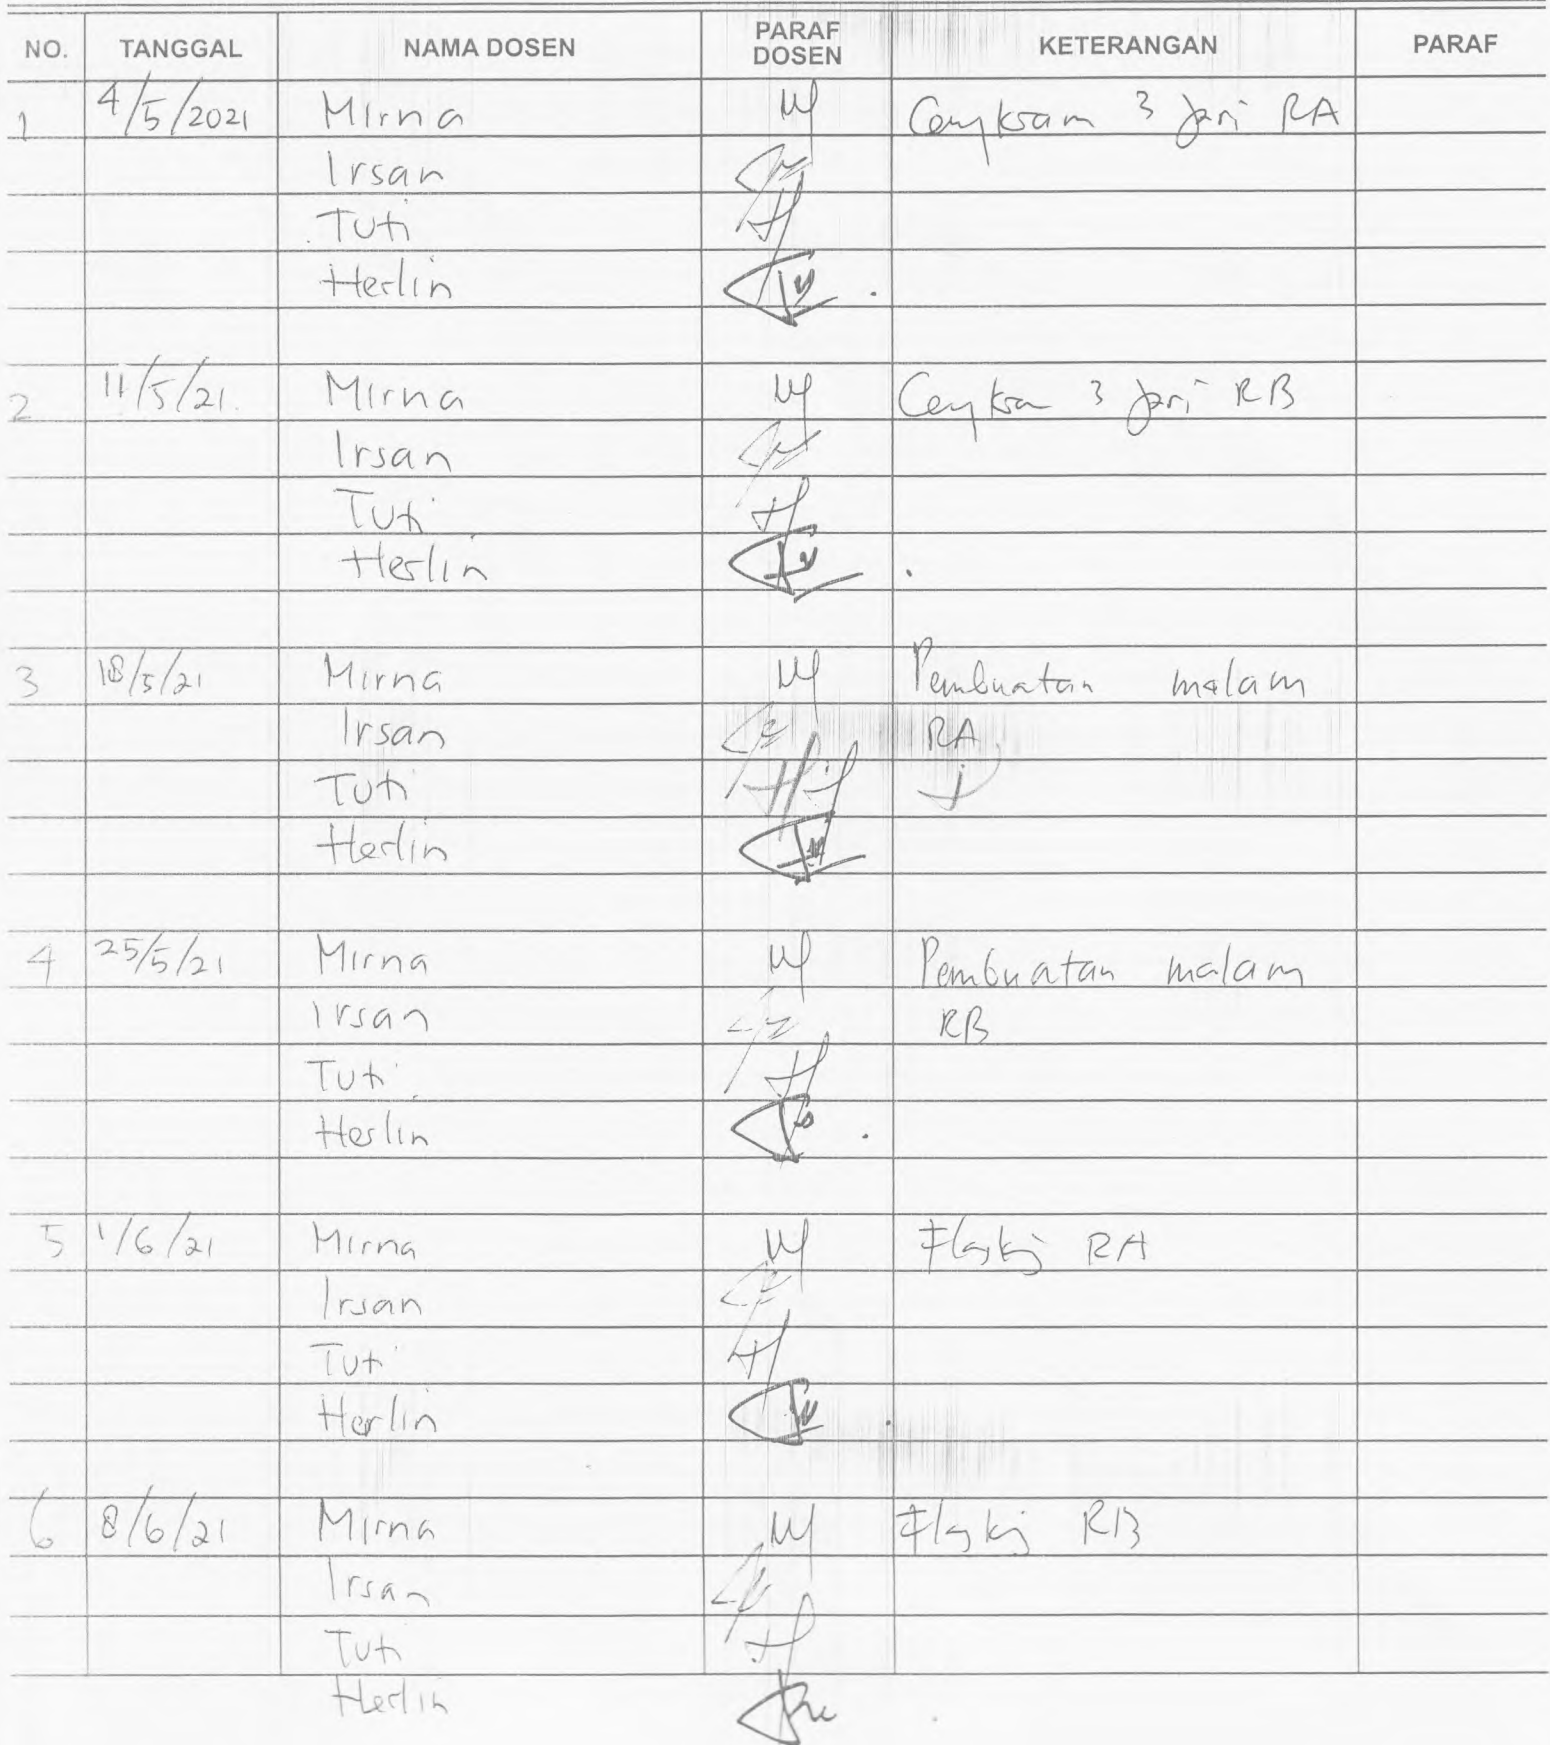 NO. TANGGAL NAMA DOSEN PARAF DOSEN KETERANGAN PARAF
1 4/5/2021 Mirna Cengkram 3 Jari RA
Irsan
Tuti
Herlin
2 11/5/21. Mirna 3 Jari RB
Irsan
Tuti
Herlin
3 18/5/21 Mirna Pembuatan malam
Irsan RA
Tuti
Herlin
4 25/5/21 Mirna Pembuatan malam
Irsan RB
Tuti
Herlin
5 1/6/21 Mirna RA
Irsan
Tuti
Herlin
6 8/6/21 Mirna RB
Irsan
Tuti
Herlin